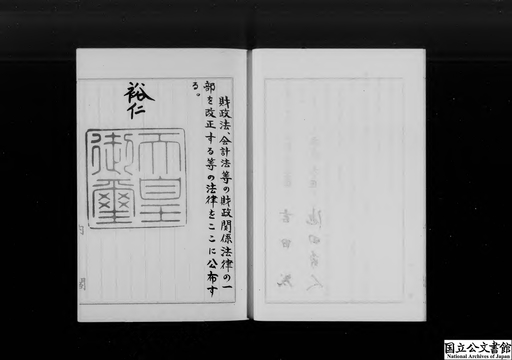 財政法、会計法等の財政関係法律の一
部を改正する等の法律をここに公布す
る。
裕仁
天皇
御璽
内閣
国立公文書館
National Archives of Japan